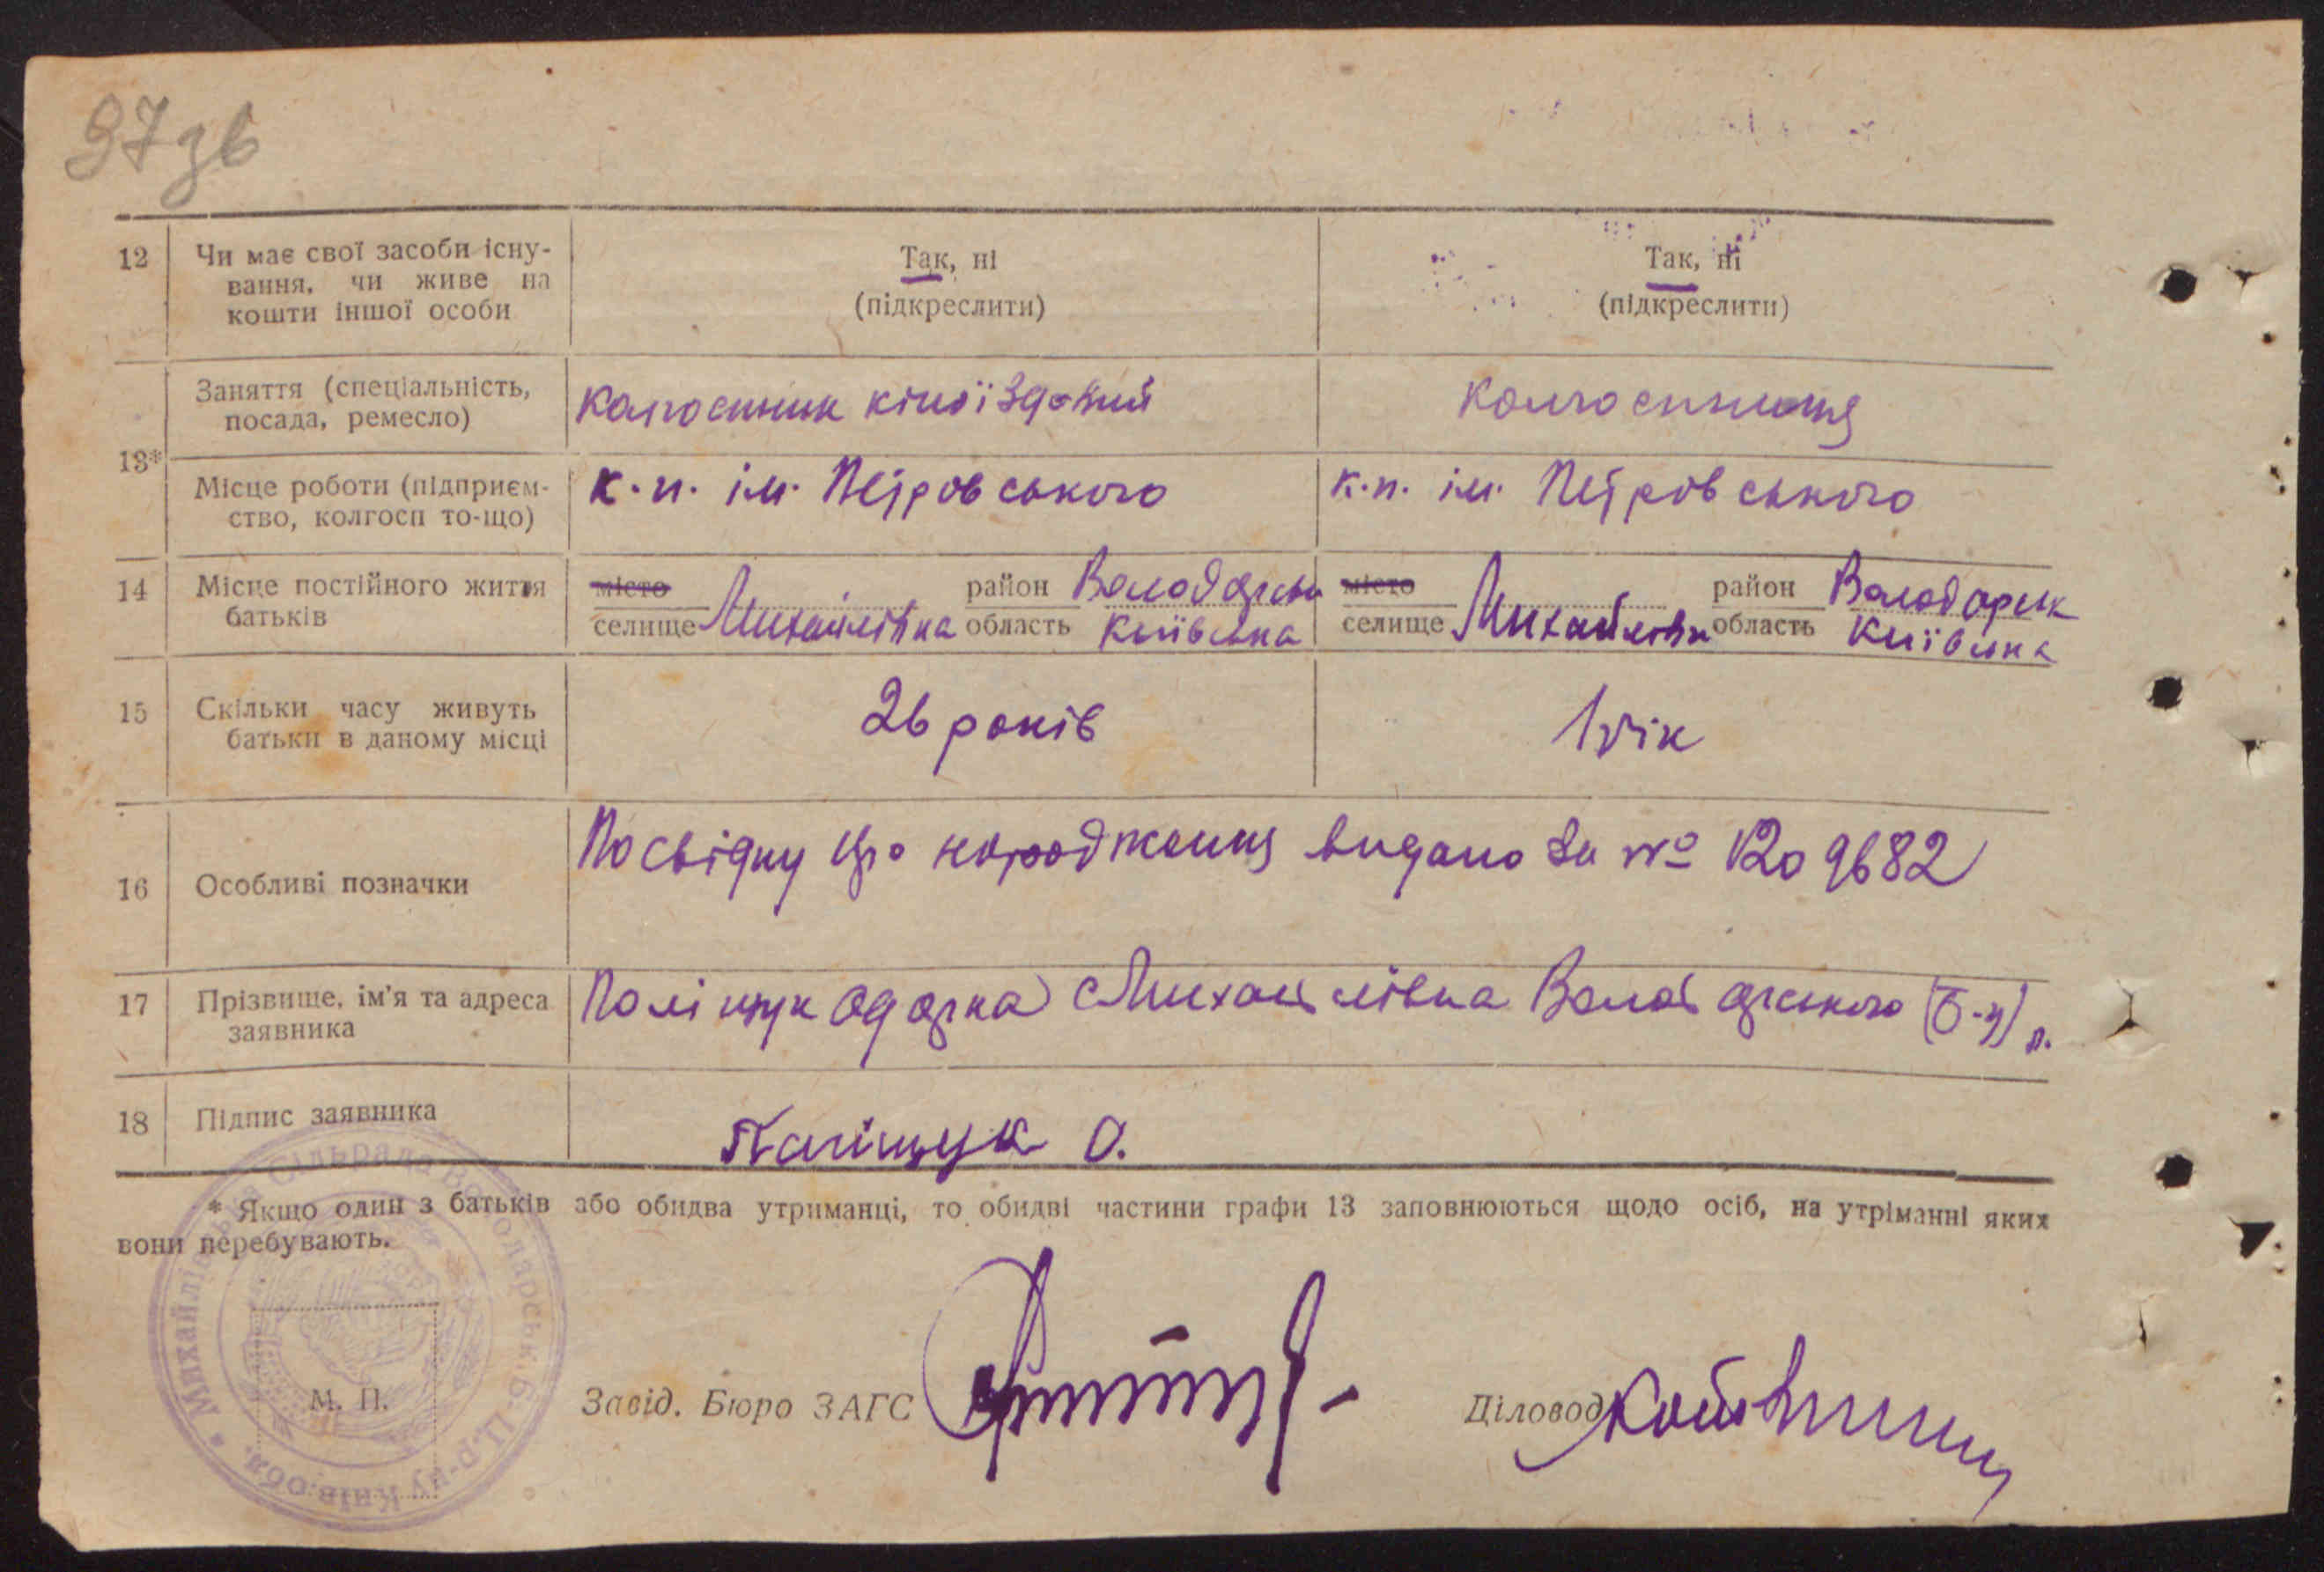 97 зв
12 Чи має свої засоби існу-
вання, чи живе на
кошти іншої особи
Так, ні
(підкреслити)
Так, ні
(підкреслити)
13*
Заняття (спеціальність,
посада, ремесло)
колгоспник
колгоспниця
Місце роботи (підприєм-
ство, колгосп то-що)
к.п. ім. Петровського
к.п. ім. Петровського
14 Місце постійного життя
батьків
місто
селище Михайлівка
район Володарськ
область Київська
місто
селище Михайлівка
район Володарськ
область Київська
15 Скільки часу живуть
батьки в даному місці
26 років
1 рік
16 Особливі позначки
Посвідку про народження видано за № 1209682
17 Прізвище, ім'я та адреса
заявника
Поліщук Одарка Михайлівка Володарського (Б-Ц) р.
18 Підпис заявника
Паліщук О.
* Якщо один з батьків або обидва утриманці, то обидві частини графи 13 заповнюються щодо осіб, на утріманні яких
вони перебувають.
Михайлівська Сільрада Володарськ. Б-Ц. р-ну Київ. обл.
М. П.
Завід. Бюро ЗАГС
Діловод